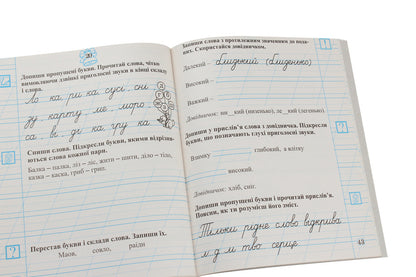 20
Допиши пропущені букви. Прочитай слова, чітко
вимовляючи дзвінкі приголосні звуки в кінці складу
і слова.
Ло ка, ри ка, сусі, сні
зу, карту, ме, моро
ка в, ді ка, гру ка
Спиши слова. Підкресли букви, якими відрізня-
ються слова кожної пари.
Балка – палка, діз – ліс, жити – шити, діло – тіло,
казка – каска, гриб – грип.
Перестав букви і склади слова. Запиши їх.
Маов, сояло, раіди
Запиши слова з протилежним значенням до пода-
них. Скористайся довідничком.
Далекий – близький (близенько)
Високий –
Важкий –
Довідничок: ни_кий (низенько), ле_кий (легенько).
Допиши у прислів'я слова з довідничка. Підкресли
букви, що позначають глухі приголосні звуки.
Взимку глибокий, а влітку
високий.
Довідничок: хліб, сніг.
Допиши пропущені букви і прочитай прислів'я.
Поясни, як ти розумієш його зміст.
Тільки рідне слово відкрива
м д м тво серце.
43